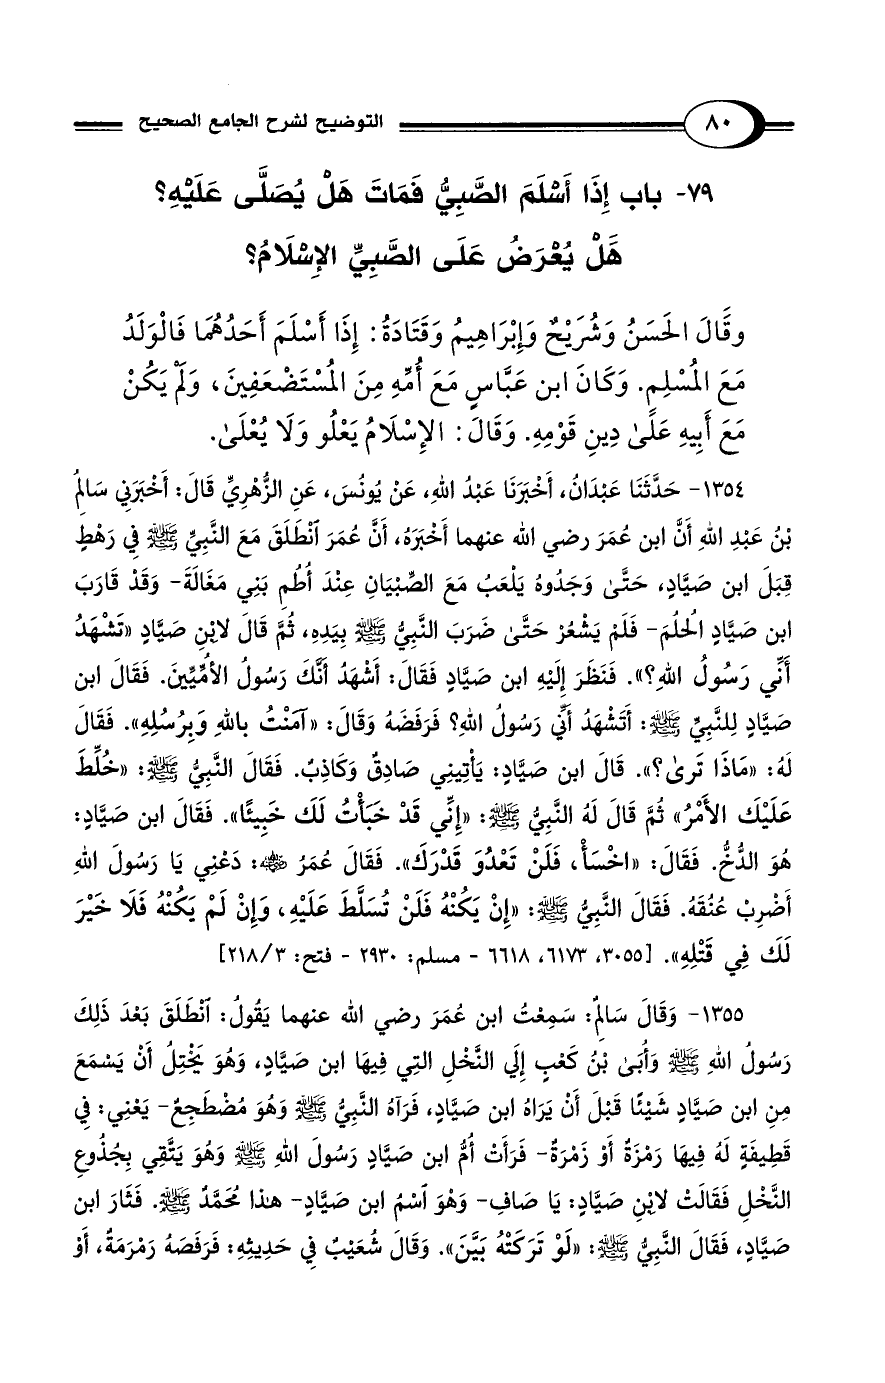 ٨٠ التوضيح لشرح الجامع الصحيح
٧٩- باب إِذَا أَسْلَمَ الصَّبِيُّ فَمَاتَ هَلْ يُصَلَّى عَلَيْهِ؟
هَلْ يُعْرَضُ عَلَى الصَّبِيِّ الإِسْلَامُ؟
وقَالَ الحَسَنُ وَشُرَيْحٌ وَإِبْرَاهِيمُ وَقَتَادَةُ: إِذَا أَسْلَمَ أَحَدُهُمَا فَالْوَلَدُ
مَعَ المُسْلِمِ. وَكَانَ ابن عَبَّاسٍ مَعَ أُمِّهِ مِنَ المُسْتَضْعَفِينَ، وَلَمْ يَكُنْ
مَعَ أَبِيهِ عَلَىٰ دِينِ قَوْمِهِ. وَقَالَ: الإِسْلَامُ يَعْلُو وَلَا يُعْلَىٰ.
١٣٥٤- حَدَّثَنَا عَبْدَانُ، أَخْبَرَنَا عَبْدُ اللهِ، عَنْ يُونُسَ، عَنِ الزُّهْرِيِّ قَالَ: أَخْبَرَنِي سَالِمُ
بْنُ عَبْدِ اللهِ أَنَّ ابن عُمَرَ رضي الله عنهما أَخْبَرَهُ، أَنَّ عُمَرَ ٱنْطَلَقَ مَعَ النَّبِيِّ ﷺ فِي رَهْطٍ
قِبَلَ ابن صَيَّادٍ، حَتَّىٰ وَجَدُوهُ يَلْعَبُ مَعَ الصِّبْيَانِ عِنْدَ أُطُمِ بَنِي مَغَالَةَ- وَقَدْ قَارَبَ
ابن صَيَّادٍ الحُلُمَ- فَلَمْ يَشْعُرْ حَتَّىٰ ضَرَبَ النَّبِيُّ ﷺ بِيَدِهِ، ثُمَّ قَالَ لابْنِ صَيَّادٍ «تَشْهَدُ
أَنِّي رَسُولُ اللهِ؟». فَنَظَرَ إِلَيْهِ ابن صَيَّادٍ فَقَالَ: أَشْهَدُ أَنَّكَ رَسُولُ الأُمِّيِّينَ. فَقَالَ ابن
صَيَّادٍ لِلنَّبِيِّ ﷺ: أَتَشْهَدُ أَنِّي رَسُولُ اللهِ؟ فَرَفَضَهُ وَقَالَ: «آمَنْتُ باللهِ وَبِرُسُلِهِ». فَقَالَ
لَهُ: «مَاذَا تَرىٰ؟». قَالَ ابن صَيَّادٍ: يَأْتِينِي صَادِقٌ وَكَاذِبٌ. فَقَالَ النَّبِيُّ ﷺ: «خُلِّطَ
عَلَيْكَ الأَمْرُ» ثُمَّ قَالَ لَهُ النَّبِيُّ ﷺ: «إِنِّي قَدْ خَبَأْتُ لَكَ خَبِيئًا». فَقَالَ ابن صَيَّادٍ:
هُوَ الدُّخُّ. فَقَالَ: «اخْسَأْ، فَلَنْ تَعْدُوَ قَدْرَكَ». فَقَالَ عُمَرُ ﵁: دَعْنِي يَا رَسُولَ اللهِ
أَضْرِبْ عُنُقَهُ. فَقَالَ النَّبِيُّ ﷺ: «إِنْ يَكُنْهُ فَلَنْ تُسَلَّطَ عَلَيْهِ، وَإِنْ لَمْ يَكُنْهُ فَلَا خَيْرَ
لَكَ فِي قَتْلِهِ». [٣٠٥٥، ٦١٧٣، ٦٦١٨ - مسلم: ٢٩٣٠ - فتح: ٣/ ٢١٨]
١٣٥٥- وَقَالَ سَالِمٌ: سَمِعْتُ ابن عُمَرَ رضي الله عنهما يَقُولُ: ٱنْطَلَقَ بَعْدَ ذَلِكَ
رَسُولُ اللهِ ﷺ وَأُبَىٰ بْنُ كَعْبٍ إِلَي النَّخْلِ التِي فِيهَا ابن صَيَّادٍ، وَهُوَ يَخْتِلُ أَنْ يَسْمَعَ
مِنِ ابن صَيَّادٍ شَيْئًا قَبْلَ أَنْ يَرَاهُ ابن صَيَّادٍ، فَرَآهُ النَّبِيُّ ﷺ وَهُوَ مُضْطَجِعٌ- يَعْنِي: فِي
قَطِيفَةٍ لَهُ فِيهَا رَمْزَةٌ أَوْ زَمْرَةٌ- فَرَأَتْ أُمُّ ابن صَيَّادٍ رَسُولَ اللهِ ﷺ وَهُوَ يَتَّقِي بِجُذُوعِ
النَّخْلِ فَقَالَتْ لابْنِ صَيَّادٍ: يَا صَافِ- وَهْوَ ٱسْمُ ابن صَيَّادٍ- هذا مُحَمَّدٌ ﷺ. فَثَارَ ابن
صَيَّادٍ، فَقَالَ النَّبِيُّ ﷺ: «لَوْ تَرَكَتْهُ بَيَّنَ». وَقَالَ شُعَيْبٌ فِي حَدِيثِهِ: فَرَفَصَهُ رَمْرَمَةٌ، أَوْ